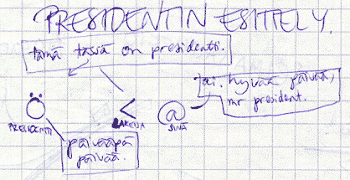 PRESIDENTIN ESITTELY.
tämä tässä on presidentti.
hyvää päivää,
mr president.
Ö < @
PRESIDENTTI LAKEIJA SINÄ
päivääpä
päivää.